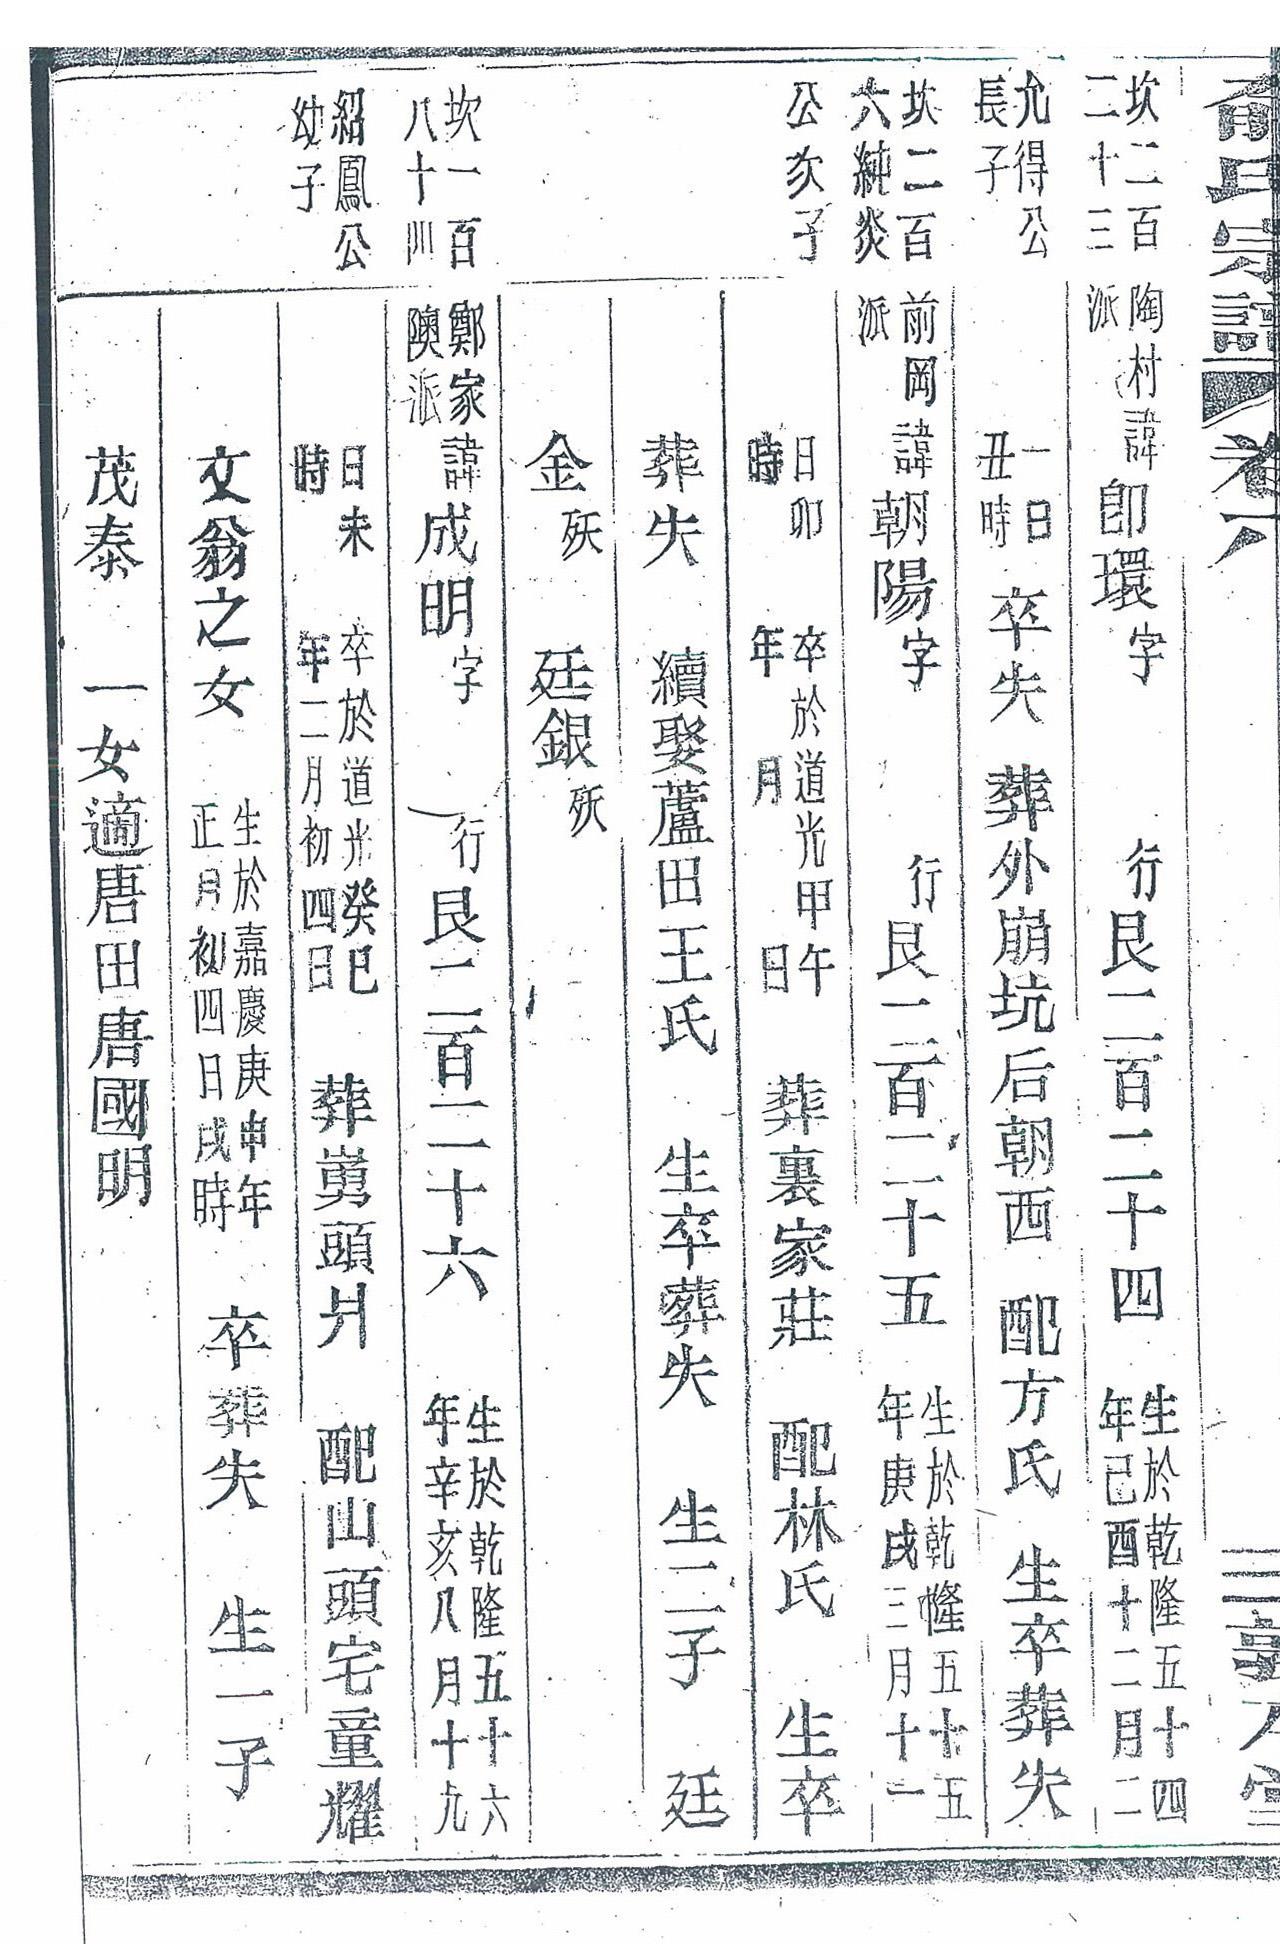 俞氏宗譜 卷六
坎二百
二十三
陶村
派
諱卽環字 行艮二百二十四
生於乾隆五十四
年己酉十二月二
允得公
長子
一日
丑時
卒失 葬外崩坑后朝西 配方氏 生卒葬失
坎二百
六純炎
前岡
派
諱朝陽字 行艮二百二十五
生於乾隆五十五
年庚戌三月十一
公次子
日卯
時
卒於道光甲午
年 月 日
葬裏家莊 配林氏 生卒
葬失 續娶蘆田王氏 生卒葬失 生二子 廷
金殀 廷銀殀
坎一百
八十川
鄭家
隩派
諱成明字 行艮二百二十六
生於乾隆五十六
年辛亥八月十九
紹鳳公
幼子
日未
時
卒於道光癸巳
年二月初四日
葬嵩頭爿 配山頭宅童耀
文翁之女
生於嘉慶庚申年
正月初四日戌時
卒葬失 生一子
茂泰 一女適唐田唐國明